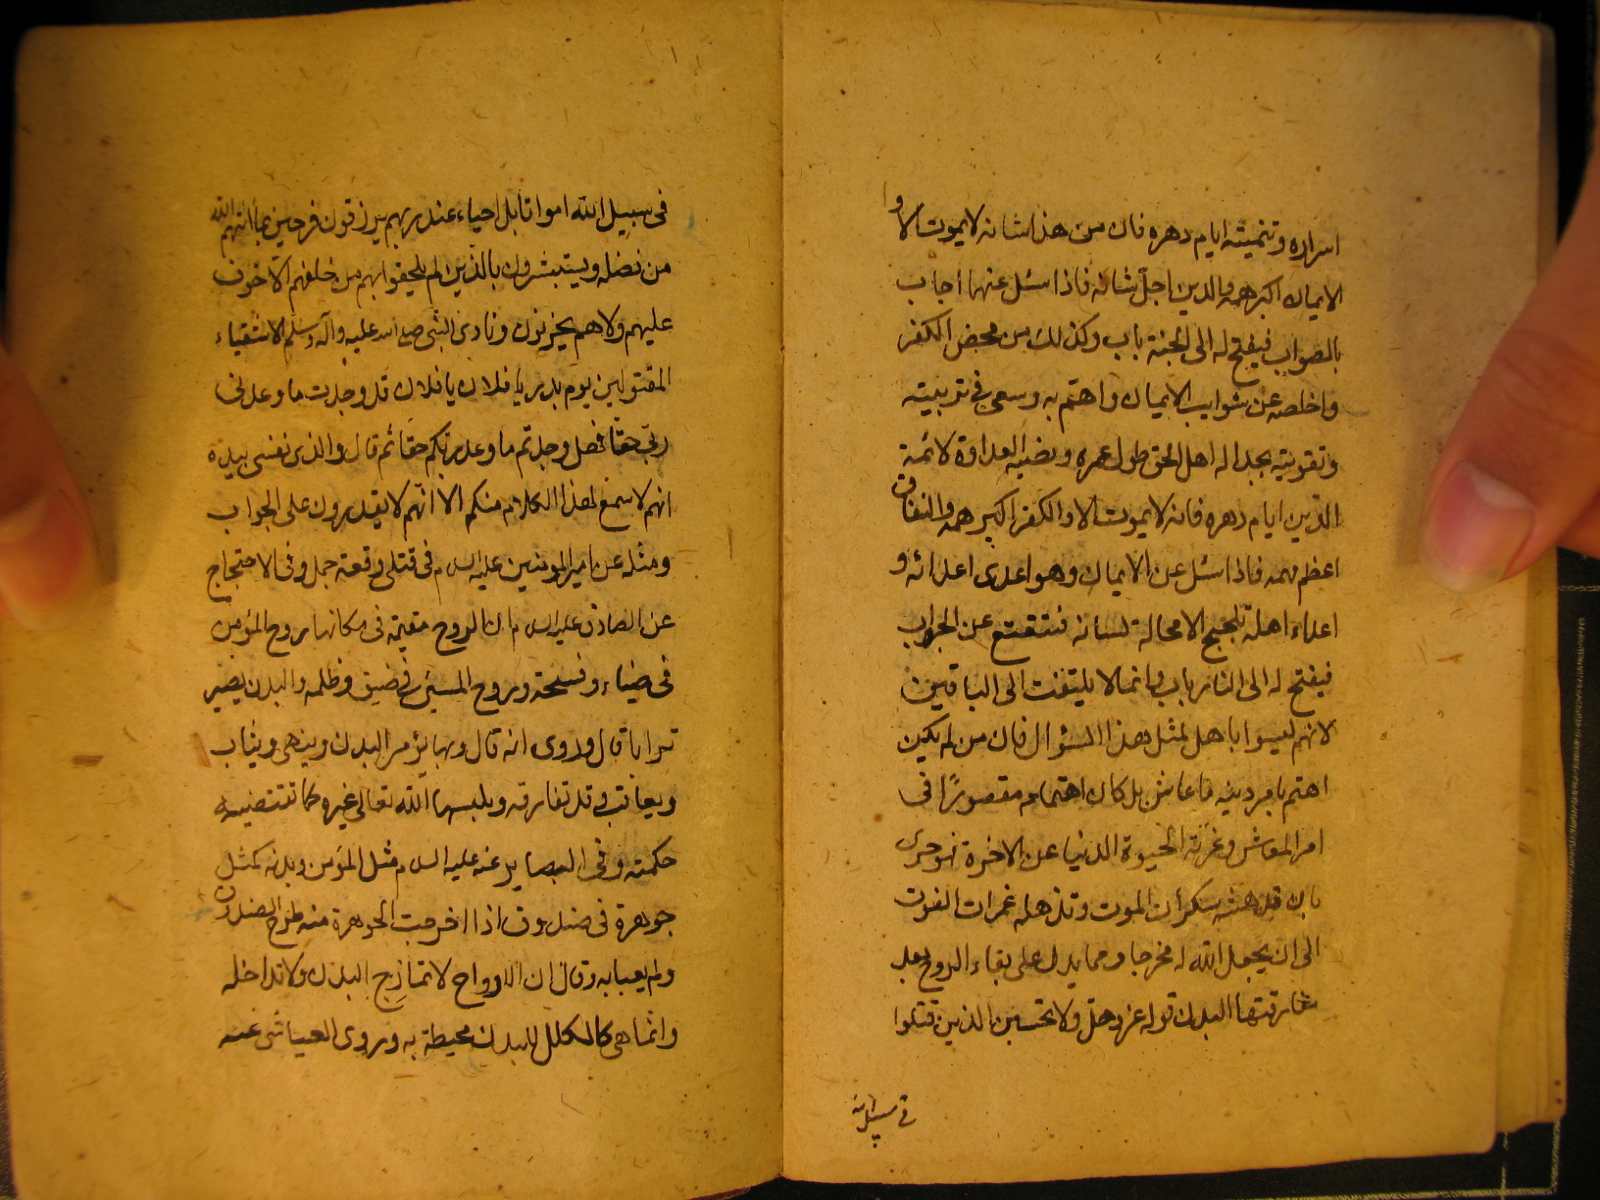 اسراره وتنميته ايام دهره فان من هذا شانه لا يموت الا و
الايمان اكبر همه والدين اجل شانه فاذا سئل عنهما اجاب
بالصواب فيفتح له الى الجنة باب وكذلك من محض الكفر
واخلصه عن شوايب الايمان واهتم به وسعى في تربيته
وتقويته بجداله اهل الحق طول عمره ونصبه العداوة لائمة
الدين ايام دهره فانه لا يموت الا والكفر اكبر همه والنفاق
اعظم مهمه فاذا سئل عن الايمان وهو اعدى اعدائه و
اعداء اهله تلجلج لا محالة لسانه فتتعتع عن الجواب
فيفتح له الى النار باب وانما لا يلتفت الى الباقين
لانهم ليسوا باهل لمثل هذا السؤال فان من لم يكن
اهتم بامر دينه ما عاش بل كان اهتمامه مقصورًا في
امر المعاش وغرته الحيوة الدنيا عن الاخرة فهو حرى
بان تدهشه سكرات الموت وتذهله غمرات الفوت
الى ان يجعل الله له مخرجا ومما يدل على بقاء الروح بعد
مفارقتها البدن قوله عز وجل ولا تحسبن الذين قتلوا
في سبيل الله
فى سبيل الله امواتا بل احياء عند ربهم يرزقون فرحين بما آتاهم الله
من فضله ويستبشرون بالذين لم يلحقوا بهم من خلفهم الا خوف
عليهم ولا هم يحزنون ونادى النبى صلى الله عليه وآله وسلم الاشقياء
المقتولين يوم بدر يا فلان يا فلان قد وجدت ما وعدنى
ربى حقا فهل وجدتم ما وعد ربكم حقا ثم قال والذى نفسى بيده
انهم لاسمع لهذا الكلام منكم الا انهم لا يقدرون على الجواب
ومثله عن امير المؤمنين عليه السلام فى قتلى وقعة جمل وفى الاحتجاج
عن الصادق عليه السلام ان الروح مقيمة فى مكانها روح المؤمن
فى ضياء وفسحة وروح المسيئ في ضيق وظلمه والبدن يصير
ترابا قال وروى انه قال وبها يؤمر البدن وينهى ويثاب
ويعاقب وقد تفارقه ويلبسها الله تعالى غيره كما تقتضيه
حكمته وفى البصاير عنه عليه السلام مثل المؤمن وبدنه كمثل
جوهرة فى صندوق اذا اخرجت الجوهرة منه طرح الصندوق
ولم يعبا به وقال ان الارواح لا تمازج البدن ولا تداخله
وانما هى كالكلل للبدن محيطة به وروى العياشى عنه